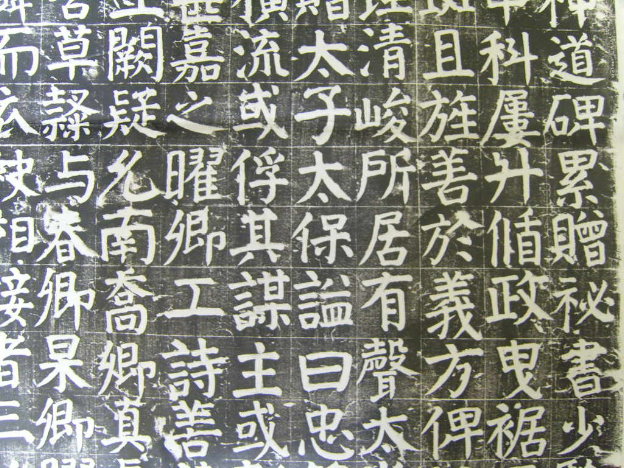 神道碑累贈祕書少
科屢升偱政曳裾
且旌善於義方俾
清峻所居有聲太
贈太子太保謚曰忠
橫流或俘其謀主或
甚嘉之曜卿工詩善
闕疑允南喬卿真
草隸与春卿杲卿
而相接者三